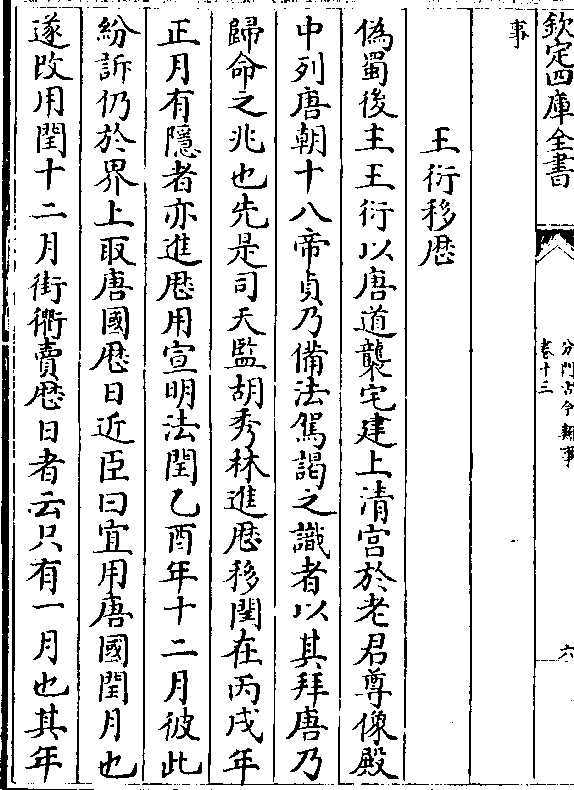 欽定四庫全書
分門古今類事
卷十三
六
事
王衍移厯
偽蜀後主王衍以唐道襲宅建上清宫於老君尊像殿
中列唐朝十八帝貞乃備法駕謁之識者以其拜唐乃
歸命之兆也先是司天監胡秀林進厯移閏在丙戌年
正月有隱者亦進厯用宣明法閏乙酉年十二月彼此
紛訴仍於界上取唐國厯日近臣曰宜用唐國閏月也
遂改用閏十二月街衢賣厯日者云只有一月也其年